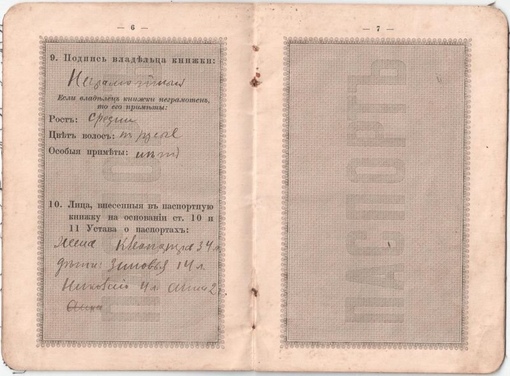 — 6 —
9. Подпись владѣльца книжки:
Неграмотный
Если владѣлецъ книжки неграмотенъ,
то его примѣты:
Ростъ: средни
Цвѣтъ волосъ: т. русые
Особыя примѣты: нѣтъ
10. Лица, внесенныя въ паспортную
книжку на основаніи ст. 10 и
11 Устава о паспортахъ:
Жена 34 л.
дѣти: Зиновья 14 л.
4 л 2
— 7 —
ПАСПОРТЪ